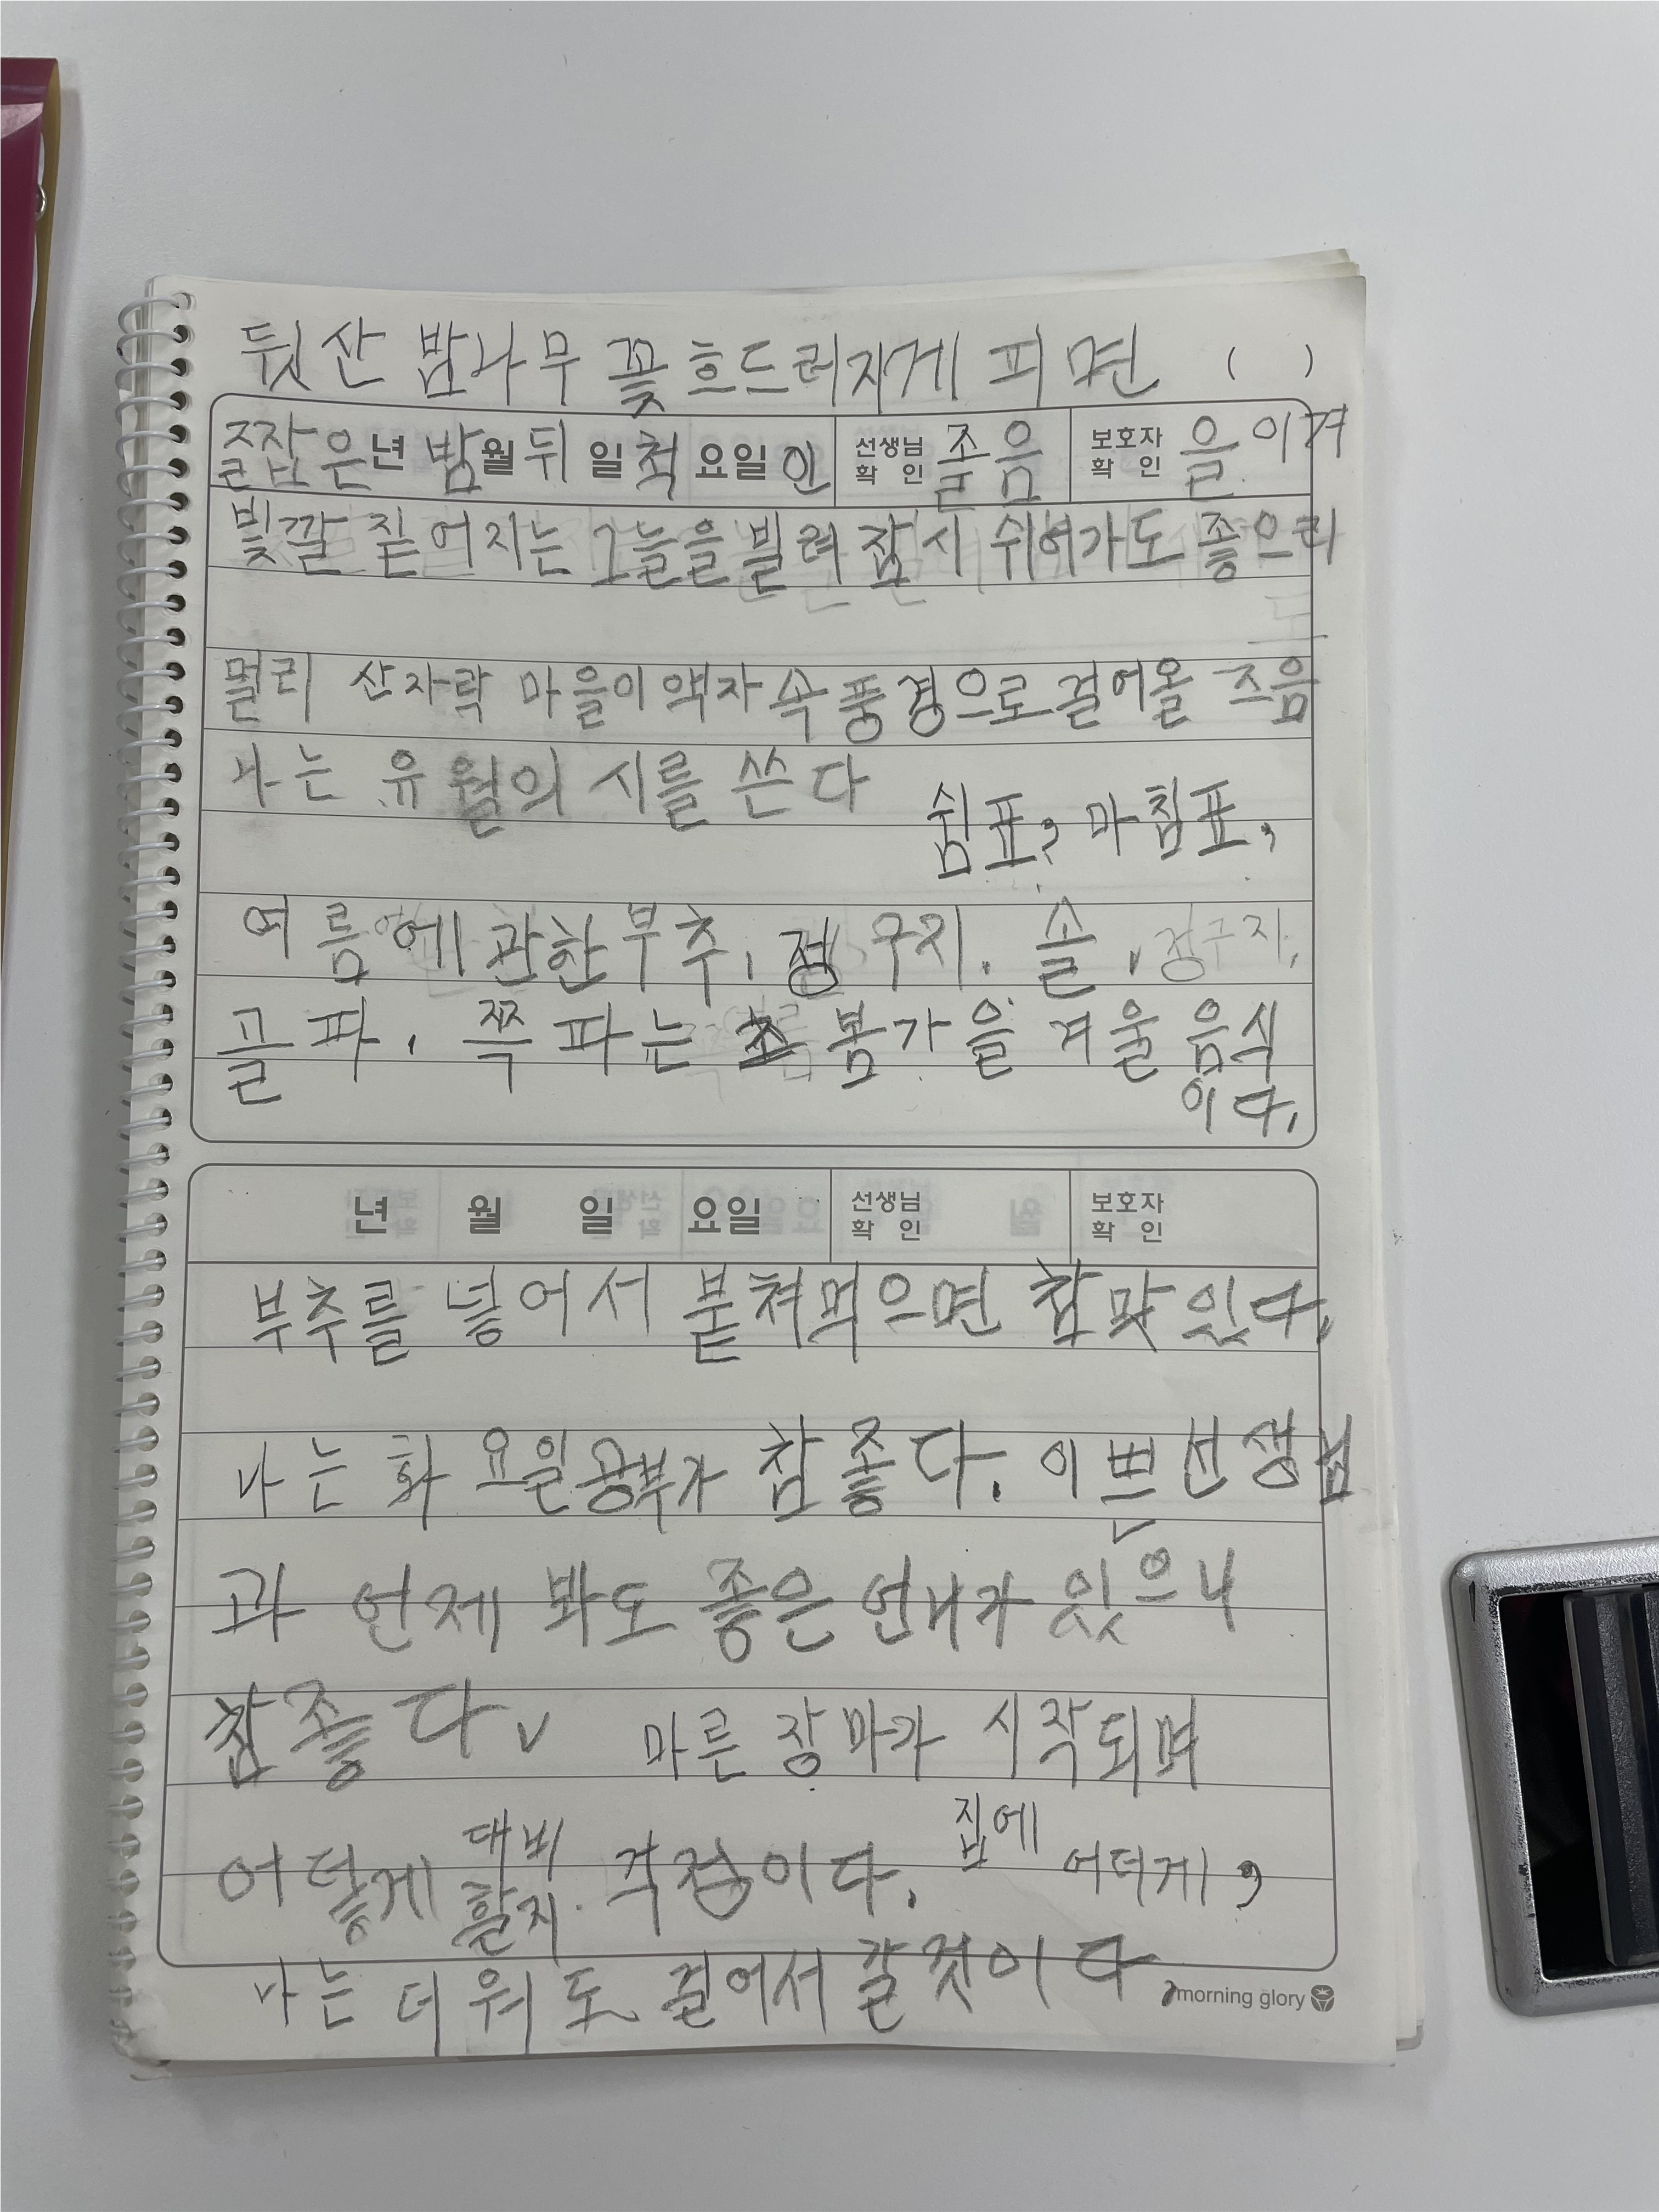 뒷산 밤나무 꽃 흐드러지게 피면 ( )
짧은 년 밤 월 뒤 일 척 요일 인 선생님 확인 졸음 보호자 확인 을 이겨
빛깔 짙어지는 그늘을 빌려 잠시 쉬어가도 좋으리
멀리 산자락 마을이 액자 속 풍경으로 걸어올 즈음
나는 유월의 시를 쓴다
쉼표, 마침표,
여름에 관한 부추, 정구지. 솔, 정구지,
골파, 쪽파는 봄가을 겨울 음식
이다.
년 월 일 요일 선생님 확인 보호자 확인
부추를 넣어서 붙쳐먹으면 참 맛있다.
나는 화요일 공부가 참 좋다. 이쁜 선생님
과 언제 봐도 좋은 언니가 있으니
참 좋다. 마른 장마가 시작되며
어덯게 대비할지. 걱정이다. 집에 어더게,
나는 더워도 걸어서 갈것이다
morning glory